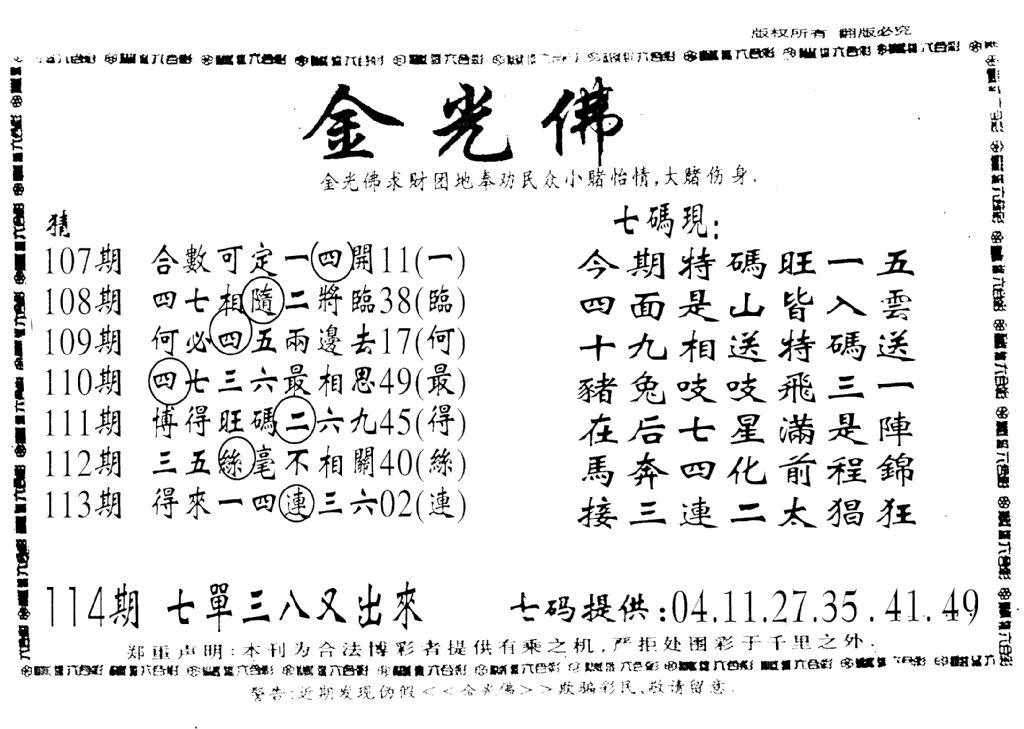 版权所有 翻版必究
金光佛
金光佛求财团地奉劝民众小赌怡情,大赌伤身.
猜
107期 合數可定一四開11(一)
108期 四七相隨二將臨38(臨)
109期 何必四五兩邊去17(何)
110期 四七三六最相思49(最)
111期 博得旺碼二六九45(得)
112期 三五絲毫不相關40(絲)
113期 得來一四連三六02(連)
七碼現:
今期特碼旺一五
四面是山皆入雲
十九相送特碼送
豬兔吱吱飛三一
在后七星滿是陣
馬奔四化前程錦
接三連二太猖狂
114期 七單三八又出來
七码提供:04.11.27.35.41.49
郑重声明:本刊为合法博彩者提供有乘之机,严拒处围彩于千里之外.
警告:近期发现伪假<<金光佛>>欺骗彩民,敬请留意.